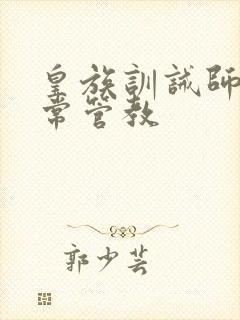 皇族訓誡師
常管教
郭少芸